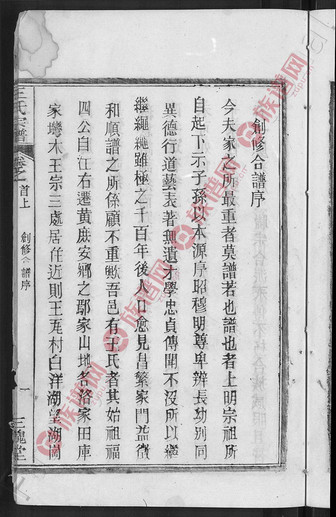 創修合譜序
今夫家之所最重者莫譜若也譜也者上明宗祖所
自起下示子孫以本源序昭穆明尊卑辨長幼別同
異德行道藝表著無遺才學忠貞傳聞不沒所以繼
繼繩繩雖極之千百年後人口愈見昌繁家門益徵
和順譜之所係顧不重歟吾邑有王氏者其始祖福
四公自江右遷黃庶安鄉之鄢家山地名洛家田庫
家塆木王宗三處居住近則王家村白洋湖望湖崗
王氏宗譜
卷之首上
創修合譜序
一
三槐堂
族譜网